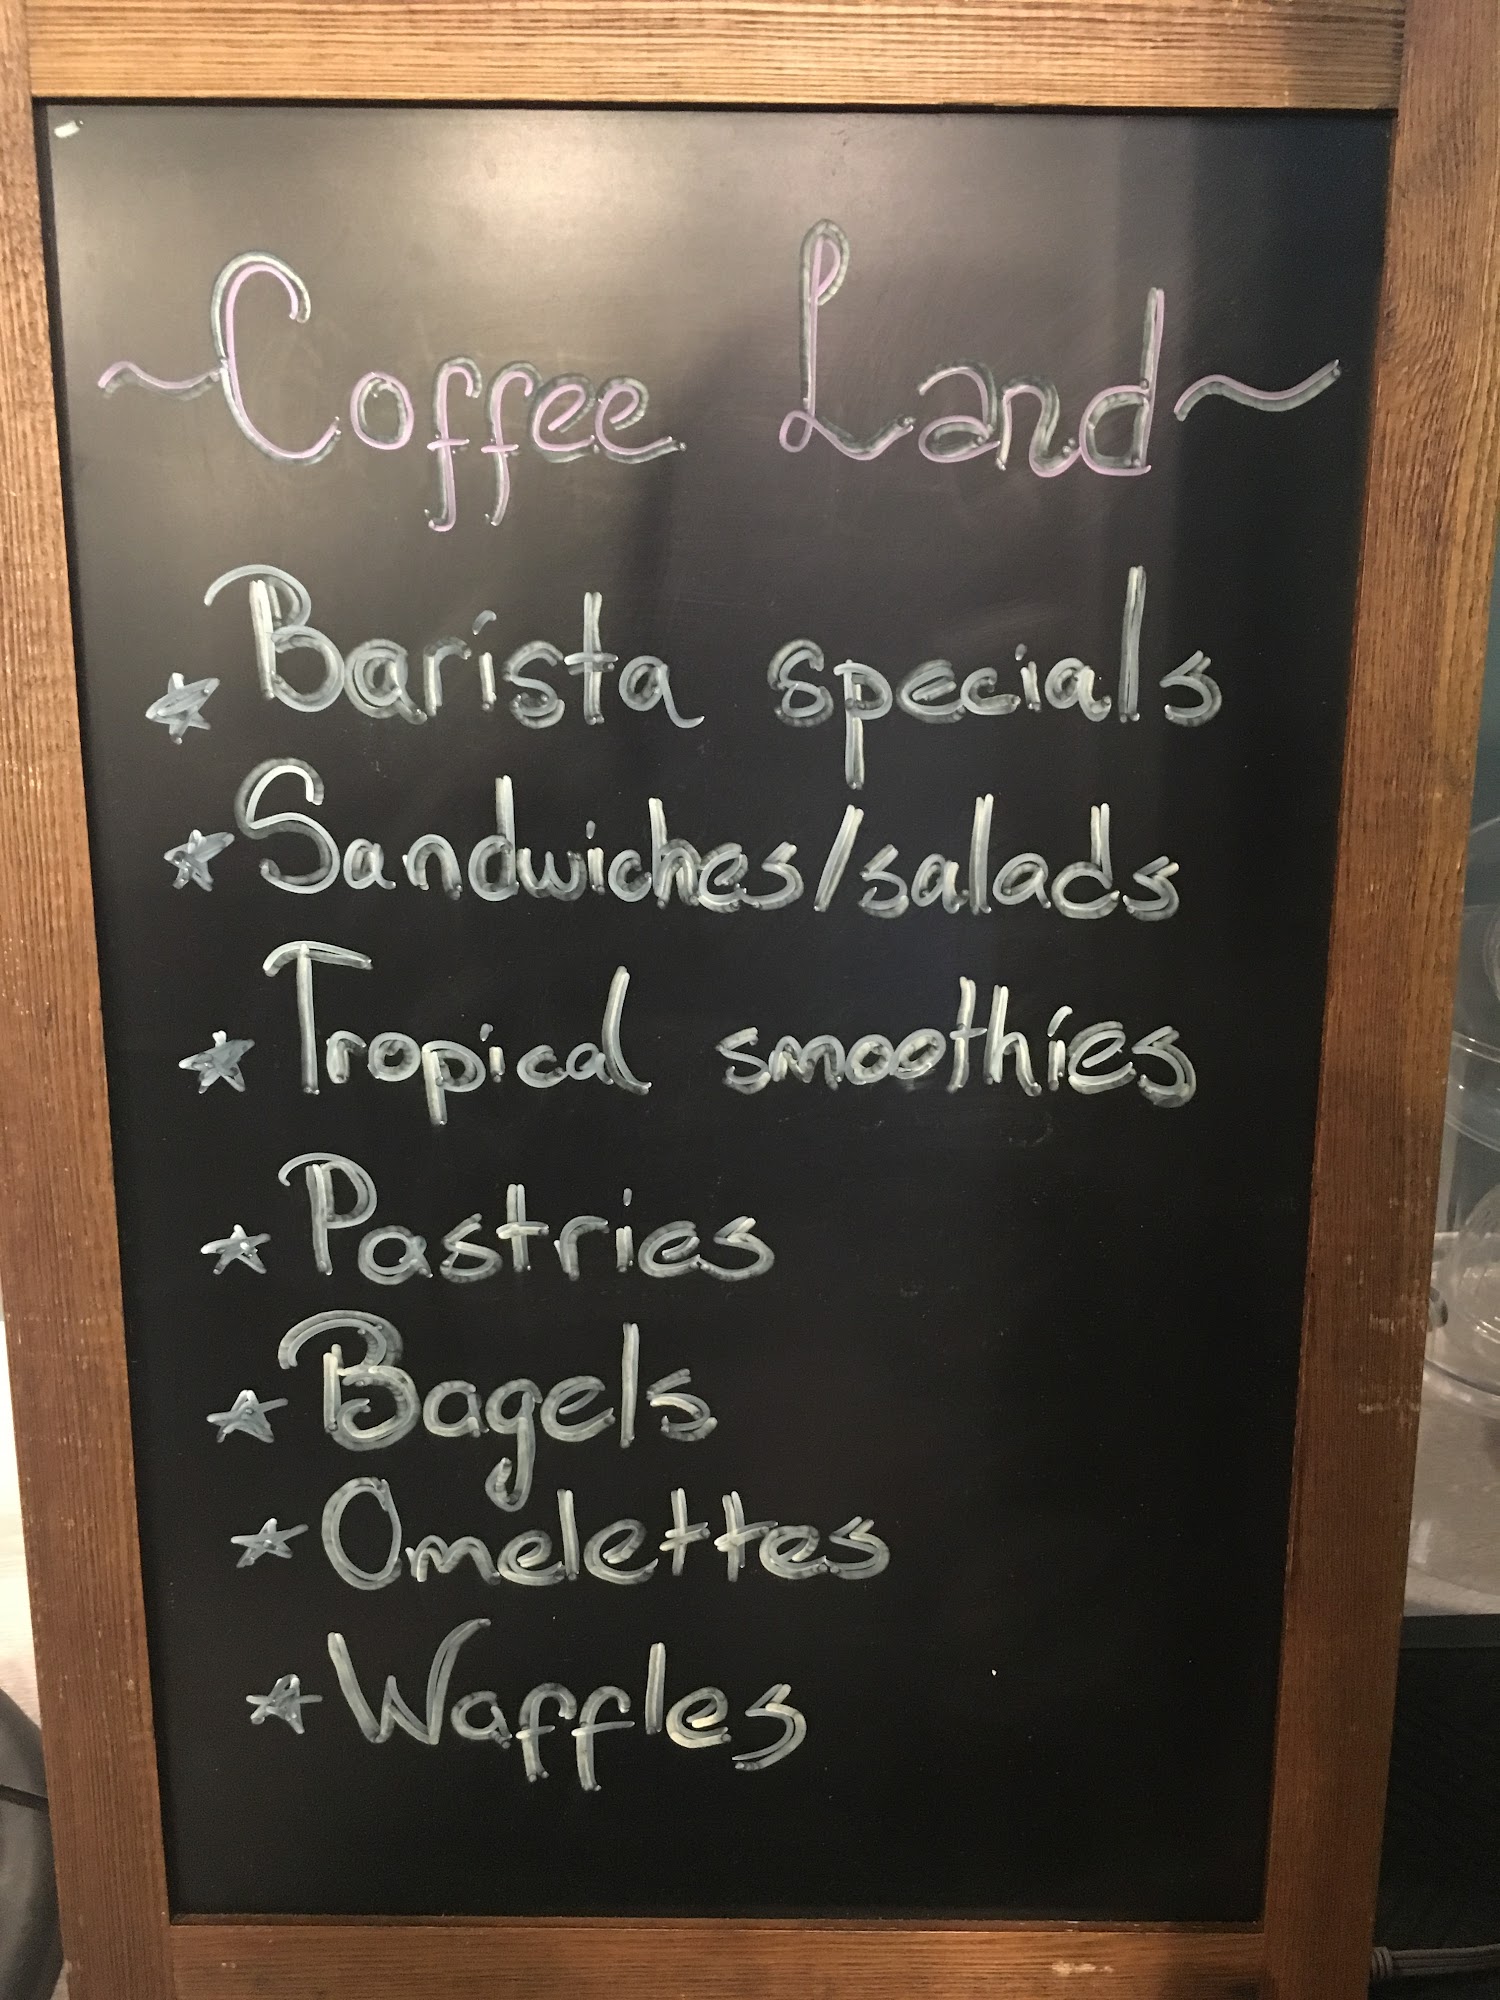 ~Coffee Land~
☆ Barista specials
☆ Sandwiches/salads
☆ Tropical smoothies
☆ Pastries
☆ Bagels
☆ Omelettes
☆ Waffles